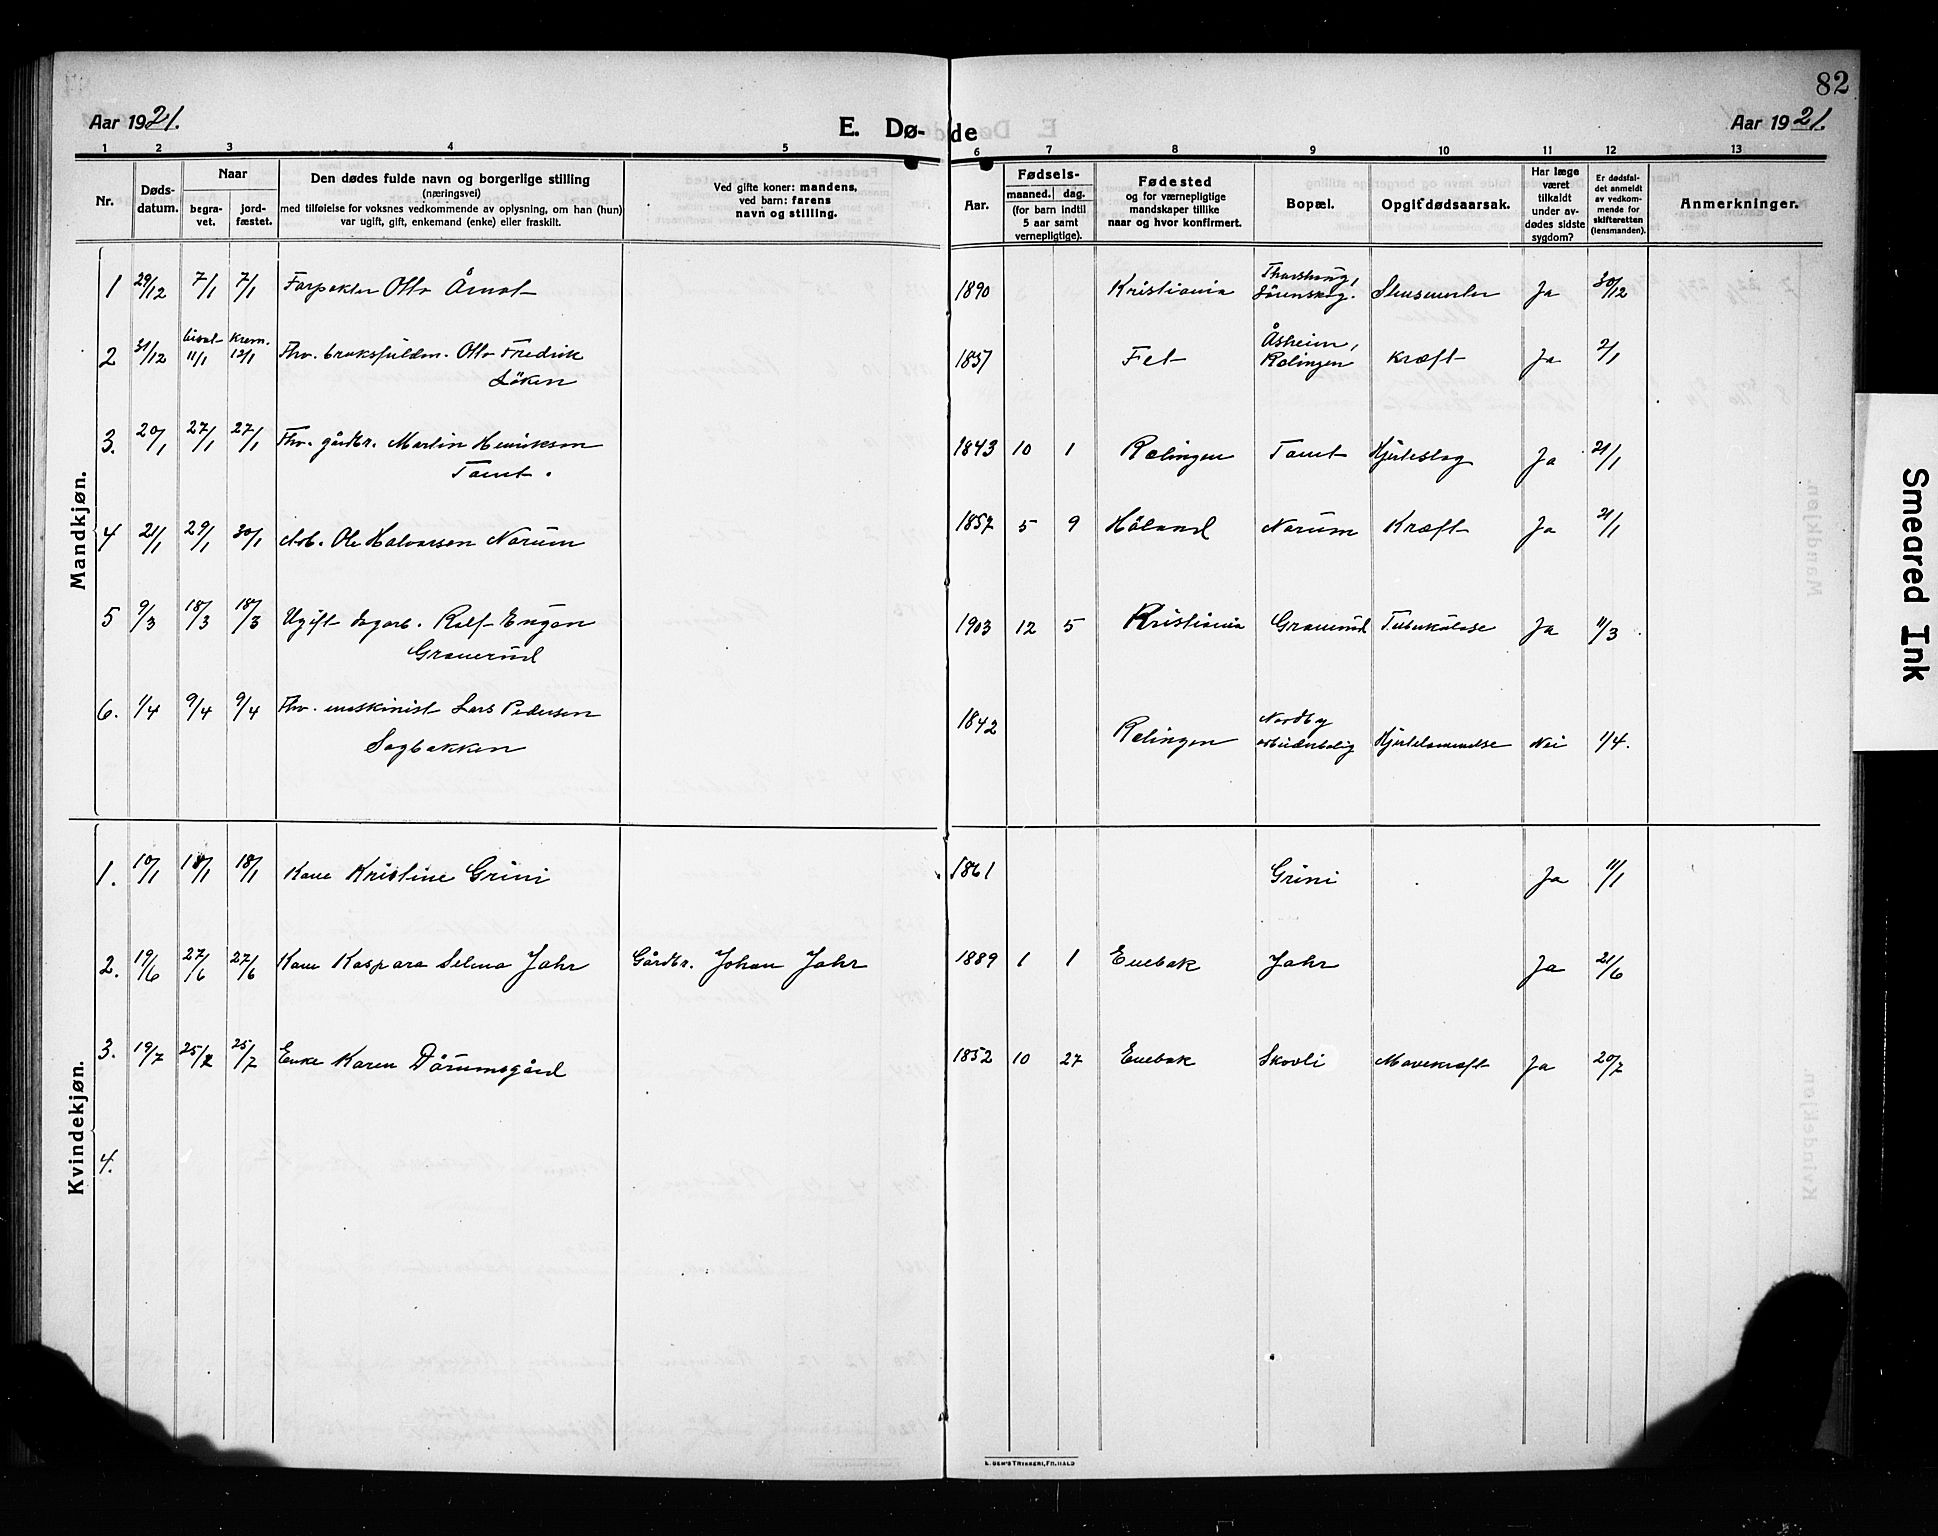 82
Aar 1921.
E. Dø-
de
Aar 1921.
1 2 3 4 5 6 7 8 9 10 11 12 13
Nr.
Døds-
datum.
Naar
begra-
vet.
jord-
fæstet.
Den dødes fulde navn og borgerlige stilling
(næringsvei)
med tilføielse for voksnes vedkommende av oplysning, om han (hun)
var ugift, gift, enkemand (enke) eller fraskilt.
Ved gifte koner: mandens,
ved barn: farens
navn og stilling.
Fødsels-
Aar.
maaned. dag.
(for barn indtil
5 aar samt
vernepligtige).
Fødested
og for værnepligtige
mandskaper tillike
naar og hvor konfirmert.
Bopæl.
Opgit dødsaarsak.
Har læge
været
tilkaldt
under av-
dødes sidste
sygdom?
Er dødsfal-
det anmeldt
av vedkom-
mende for
skifteretten
(lensmanden).
Anmerkninger.
Mandkjøn.
1 29/12 7/1 7/1 Forpakter Otto 1890 Kristiania Ja 30/12
2 31/12 11/1 Krem. 12/1 Thv. bruksfuldm. Otto Fredrik
Löken
1857 Fet Åsheim,
Rælingen Kræft Ja 2/1
3. 20/1 27/1 27/1 Thv. gårdbr. Martin Henriksen
Tomt.
1843 10 1 Rælingen Tomt Hjerteslag Ja 21/1
4 21/1 29/1 30/1 Arb. Ole Halvorsen Norum 1852 5 9 Höland Norum Kræft Ja 21/1
5 9/3 18/3 18/3 Ugift dagarb. Rolf Engan
Grauerud
1903 12 5 Kristiania Grauerud Tuberkulose Ja 11/3
6. 1/4 9/4 9/4 Thv. maskinist Lars Pedersen
Sagbakken
1842 Rælingen Nordby
arbeiderbolig Hjertelammelse Nei 1/4.
Kvindekjøn.
1. 10/1 18/1 18/1 Kone Kristine Grini 1861 Grini Ja 11/1
2. 19/6 27/6 27/6 Kone Kaspara Selma Jahr Gårdbr. Johan Jahr 1889 1 1 Enebak Jahr Ja 21/6
3. 19/7 25/7 25/7 Enke Karen Dörumsgård 1852 10 27 Enebak Skovli Mavekræft Ja 20/7
4.
Smeared Ink